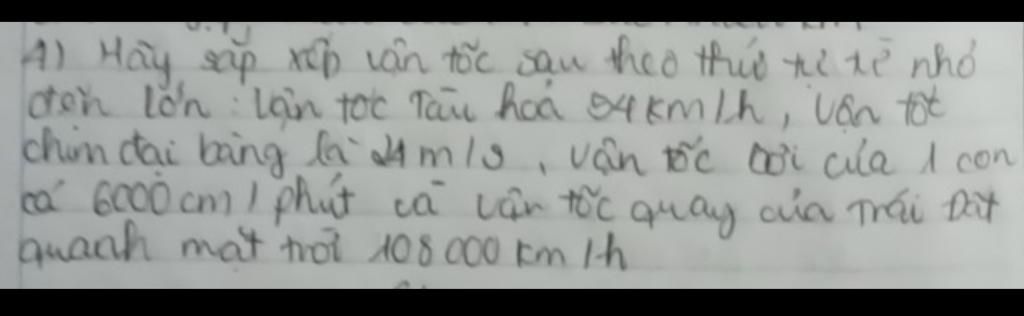 1) Hãy sắp xếp vận tốc sau theo thứ tự từ nhỏ
đến lớn: Vận tốc Tàu hoả 54km/h, Vận tốt
chim đại bàng là 24m/s, vận tốc bơi của 1 con
cá 6000cm/phút và vận tốc quay của Trái Đất
quanh mặt trời 108000km/h